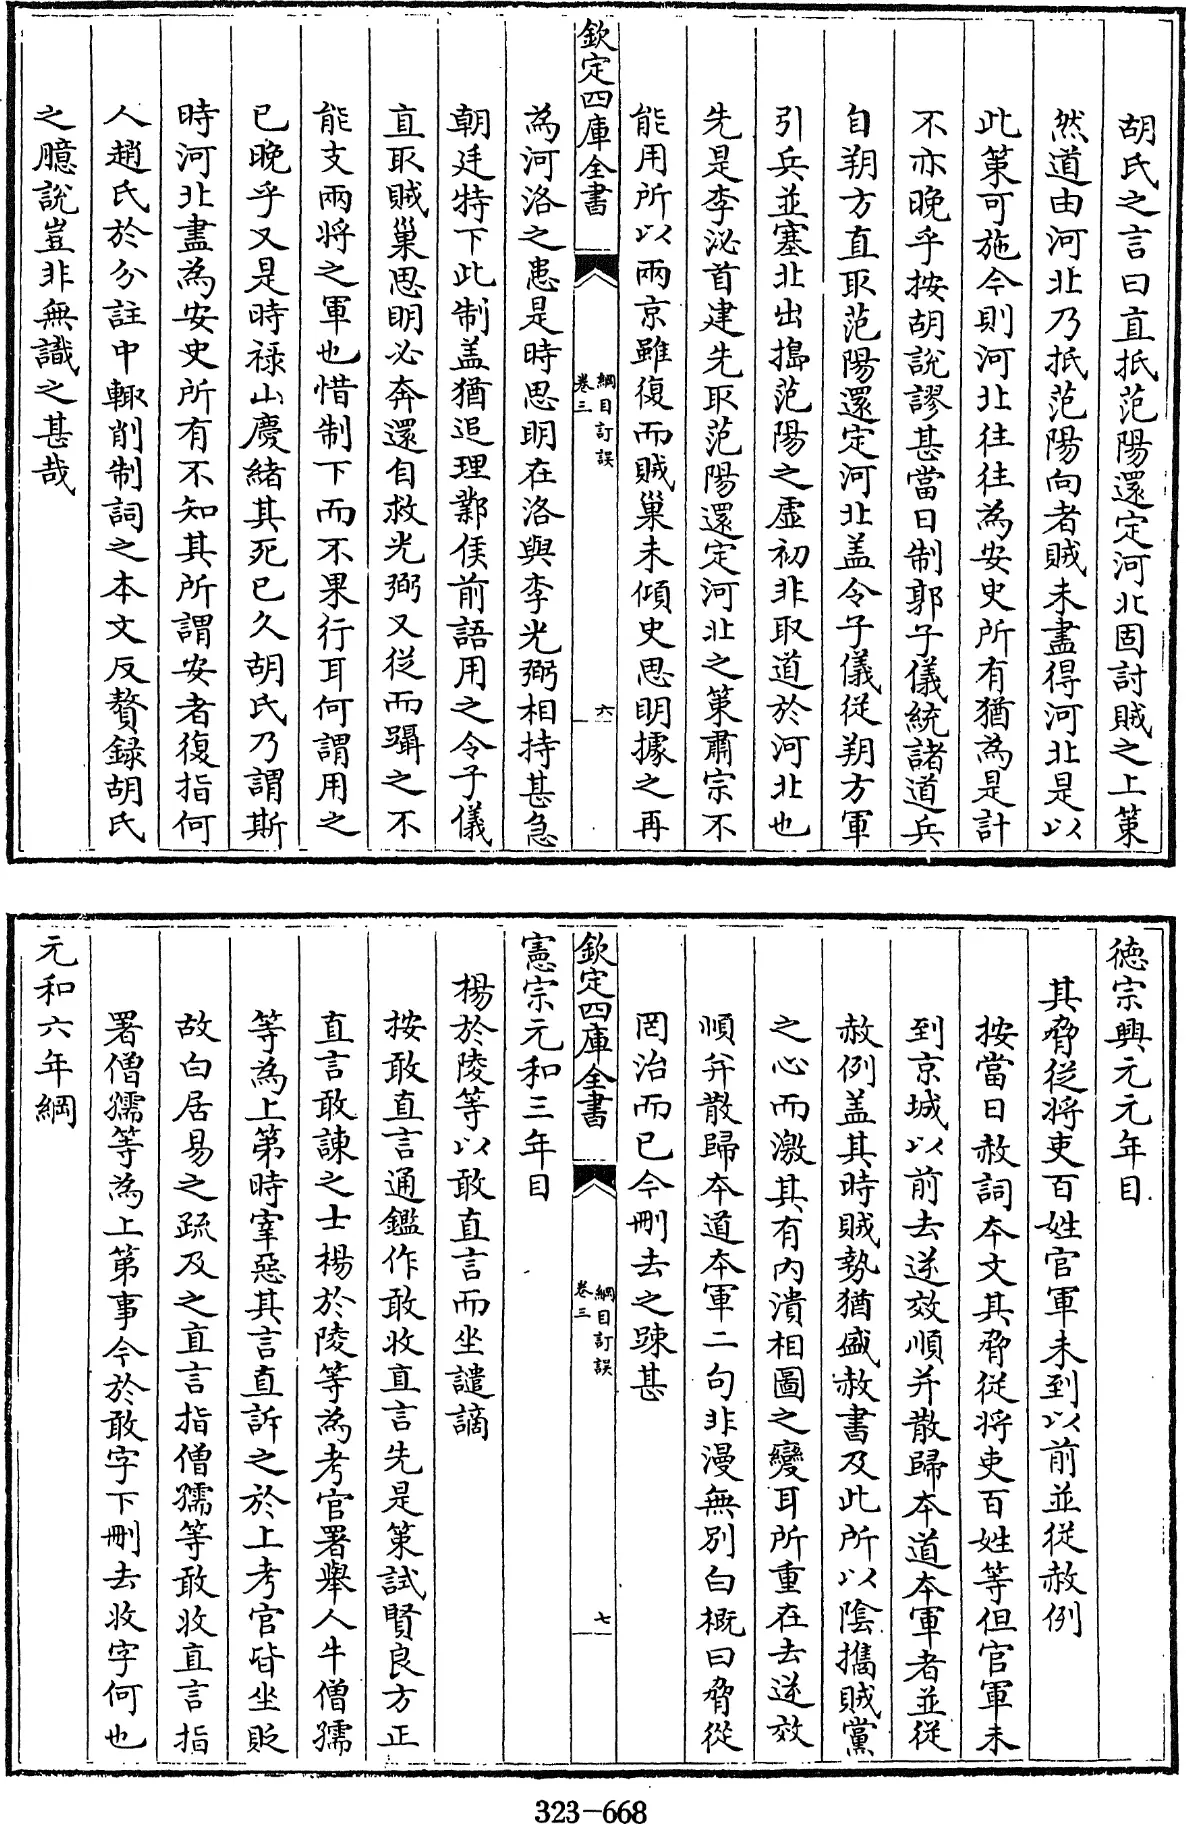 胡氏之言曰直抵范陽還定河北固討賊之上策
然道由河北乃抵范陽向者賊未盡得河北是以
此策可施今則河北往往為安史所有猶為是計
不亦晚乎按胡說謬甚當日制郭子儀統諸道兵
自朔方直取范陽還定河北盖令子儀從朔方軍
引兵並塞北出搗范陽之虛初非取道於河北也
先是李泌首建先取范陽還定河北之策肅宗不
能用所以兩京雖復而賊巢未傾史思明據之再
欽定四庫全書
綱目訂誤
卷三
六
為河洛之患是時思明在洛與李光弼相持甚急
朝廷特下此制盖猶追理鄴侯前語用之令子儀
直取賊巢思明必奔還自救光弼又從而躡之不
能支兩将之軍也惜制下而不果行耳何謂用之
已晚乎又是時禄山慶緒其死已久胡氏乃謂斯
時河北盡為安史所有不知其所謂安者復指何
人趙氏於分註中輙削制詞之本文反贅録胡氏
之臆說豈非無識之甚哉
德宗興元元年目
其脅從将吏百姓官軍未到以前並從赦例
按當日赦詞本文其脅從将吏百姓等但官軍未
到京城以前去逆效順并散歸本道本軍者並從
赦例盖其時賊勢猶盛赦書及此所以陰攜賊黨
之心而激其有内潰相圖之變耳所重在去逆效
順并散歸本道本軍二句非漫無别白概曰脅從
罔治而已今刪去之踈甚
欽定四庫全書
綱目訂誤
卷三
七
憲宗元和三年目
楊於陵等以敢直言而坐譴謫
按敢直言通鑑作敢收直言先是策試賢良方正
直言敢諫之士楊於陵等為考官署舉人牛僧孺
等為上第時宰惡其言直訴之於上考官皆坐貶
故白居易之疏及之直言指僧孺等敢收直言指
署僧孺等為上第事今於敢字下刪去收字何也
元和六年綱
323-668